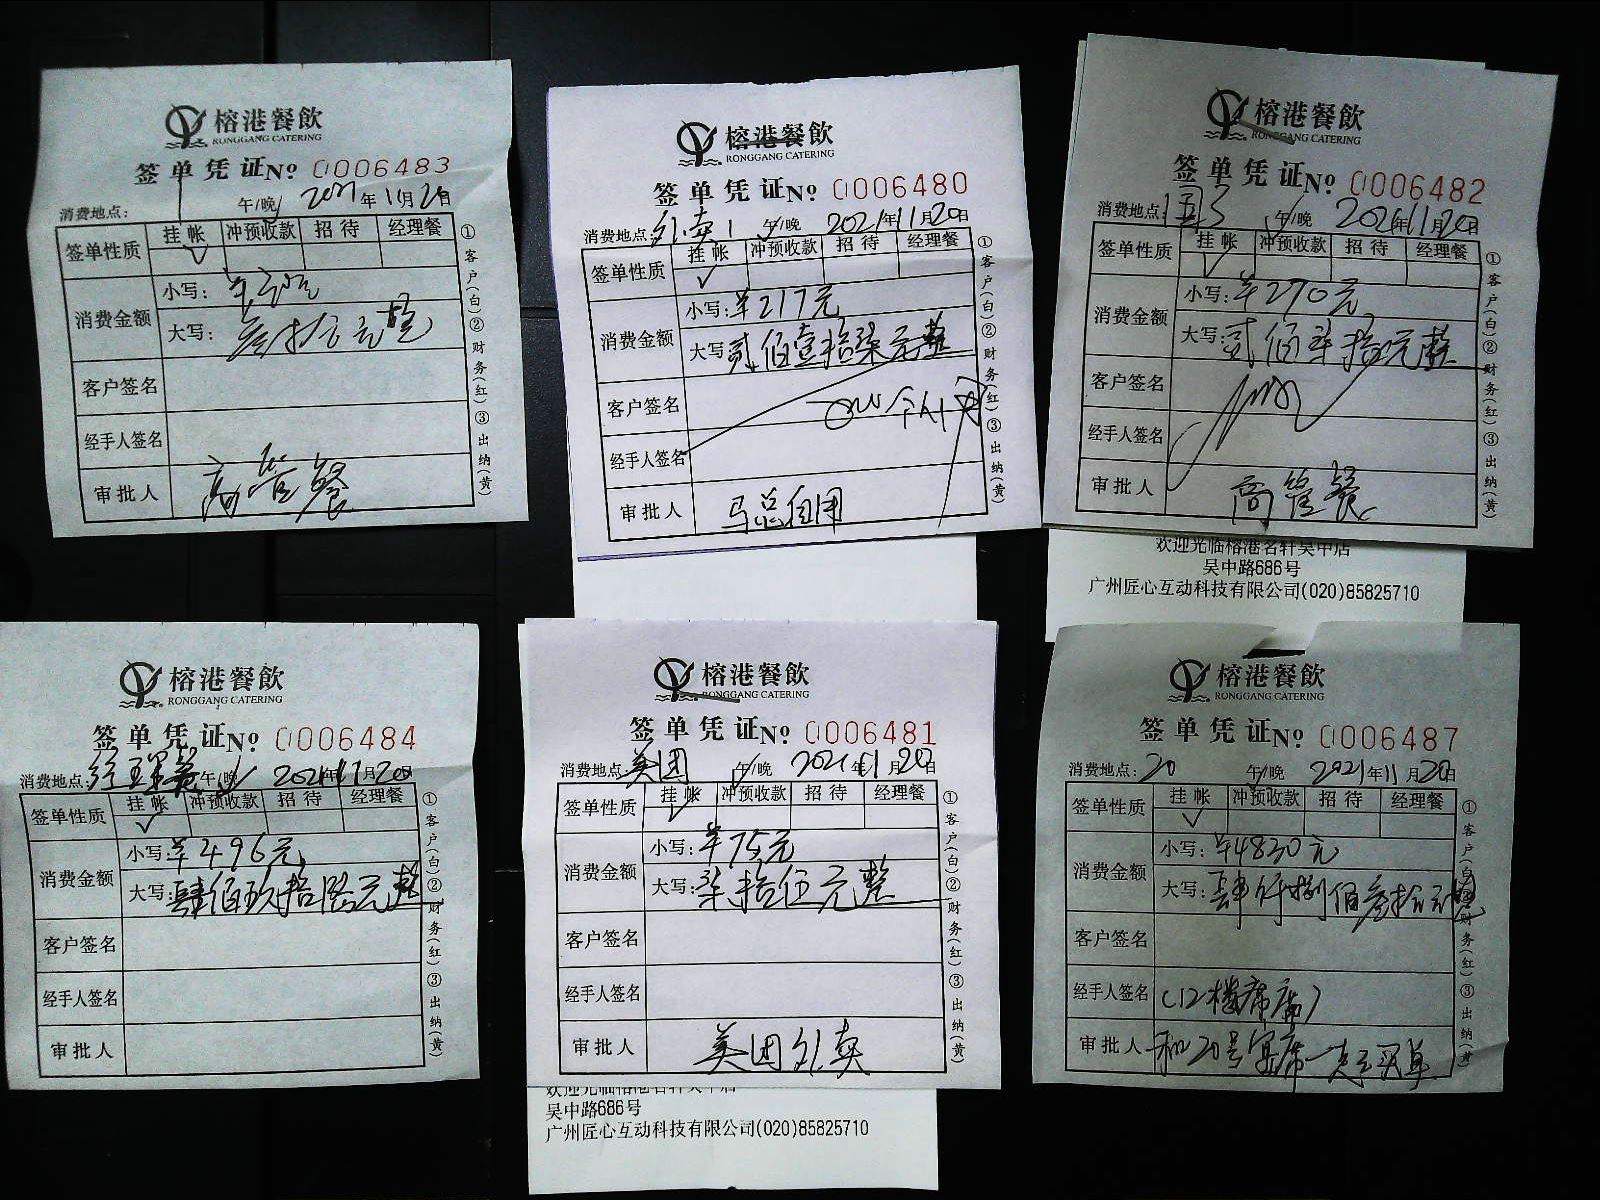 榕港餐飲
RONGGANG CATERING
签单凭证No 0006483
消费地点: 午/晚 2021年11月20日
签单性质 挂帐 冲预收款 招待 经理餐
✓
消费金额 小写:
大写: 叁拾元整
客户签名
经手人签名
审批人 高管餐
①客户(白)②财务(红)③出纳(黄)
榕港餐飲
RONGGANG CATERING
签单凭证No 0006480
消费地点: 外卖1 午/晚 2021年11月20日
签单性质 挂帐 冲预收款 招待 经理餐
✓
消费金额 小写: ¥217元
大写: 贰佰壹拾柒元整
客户签名
经手人签名
审批人 马总自用
①客户(白)②财务(红)③出纳(黄)
榕港餐飲
RONGGANG CATERING
签单凭证No 0006482
消费地点: 午/晚 2021年11月20日
签单性质 挂帐 冲预收款 招待 经理餐
✓
消费金额 小写: ¥270元
大写: 贰佰柒拾元整
客户签名
经手人签名
审批人 高管餐
①客户(白)②财务(红)③出纳(黄)
欢迎光临榕港名轩吴中店
吴中路686号
广州匠心互动科技有限公司(020)85825710
榕港餐飲
RONGGANG CATERING
签单凭证No 0006484
消费地点: 经理餐 午/晚 2021年11月20日
签单性质 挂帐 冲预收款 招待 经理餐
✓
消费金额 小写: ¥496元
大写: 肆佰玖拾陆元整
客户签名
经手人签名
审批人
①客户(白)②财务(红)③出纳(黄)
榕港餐飲
RONGGANG CATERING
签单凭证No 0006481
消费地点: 美团 午/晚 2021年11月20日
签单性质 挂帐 冲预收款 招待 经理餐
✓
消费金额 小写: ¥75元
大写: 柒拾伍元整
客户签名
经手人签名
审批人 美团外卖
①客户(白)②财务(红)③出纳(黄)
欢迎光临榕港名轩吴中店
吴中路686号
广州匠心互动科技有限公司(020)85825710
榕港餐飲
RONGGANG CATERING
签单凭证No 0006487
消费地点: 20 午/晚 2021年11月20日
签单性质 挂帐 冲预收款 招待 经理餐
✓
消费金额 小写: ¥4830元
大写: 肆仟捌佰叁拾元整
客户签名
经手人签名 (12楼席席)
审批人 和20号宴席一起买单
①客户(白)②财务(红)③出纳(黄)